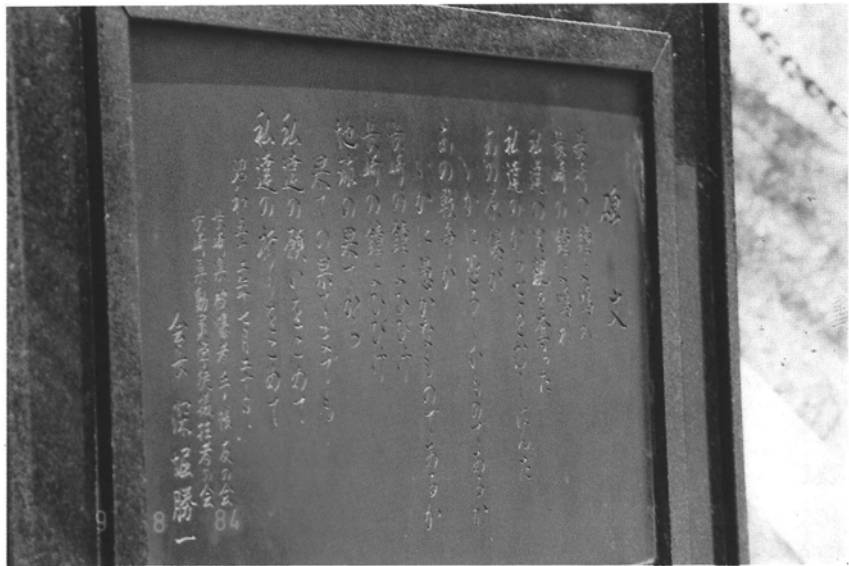 碑文
長崎の鐘よ鳴れ
長崎の鐘よ鳴れ
私達の肉親を奪った
私達のからだをむしばんだ
あの原爆が
いかに恐ろしいものであるか
あの戦争が
いかに愚かなものであるか
長崎の鐘よひびけ
長崎の鐘よひびけ
地球の果てから
果ての果てまでも
私達の願いをこめて
私達の祈りをこめて
昭和五十二年七月二十日
長崎県被爆者手帳友の会
動員学徒犠牲者の会
会長 深堀勝一
9 8 84